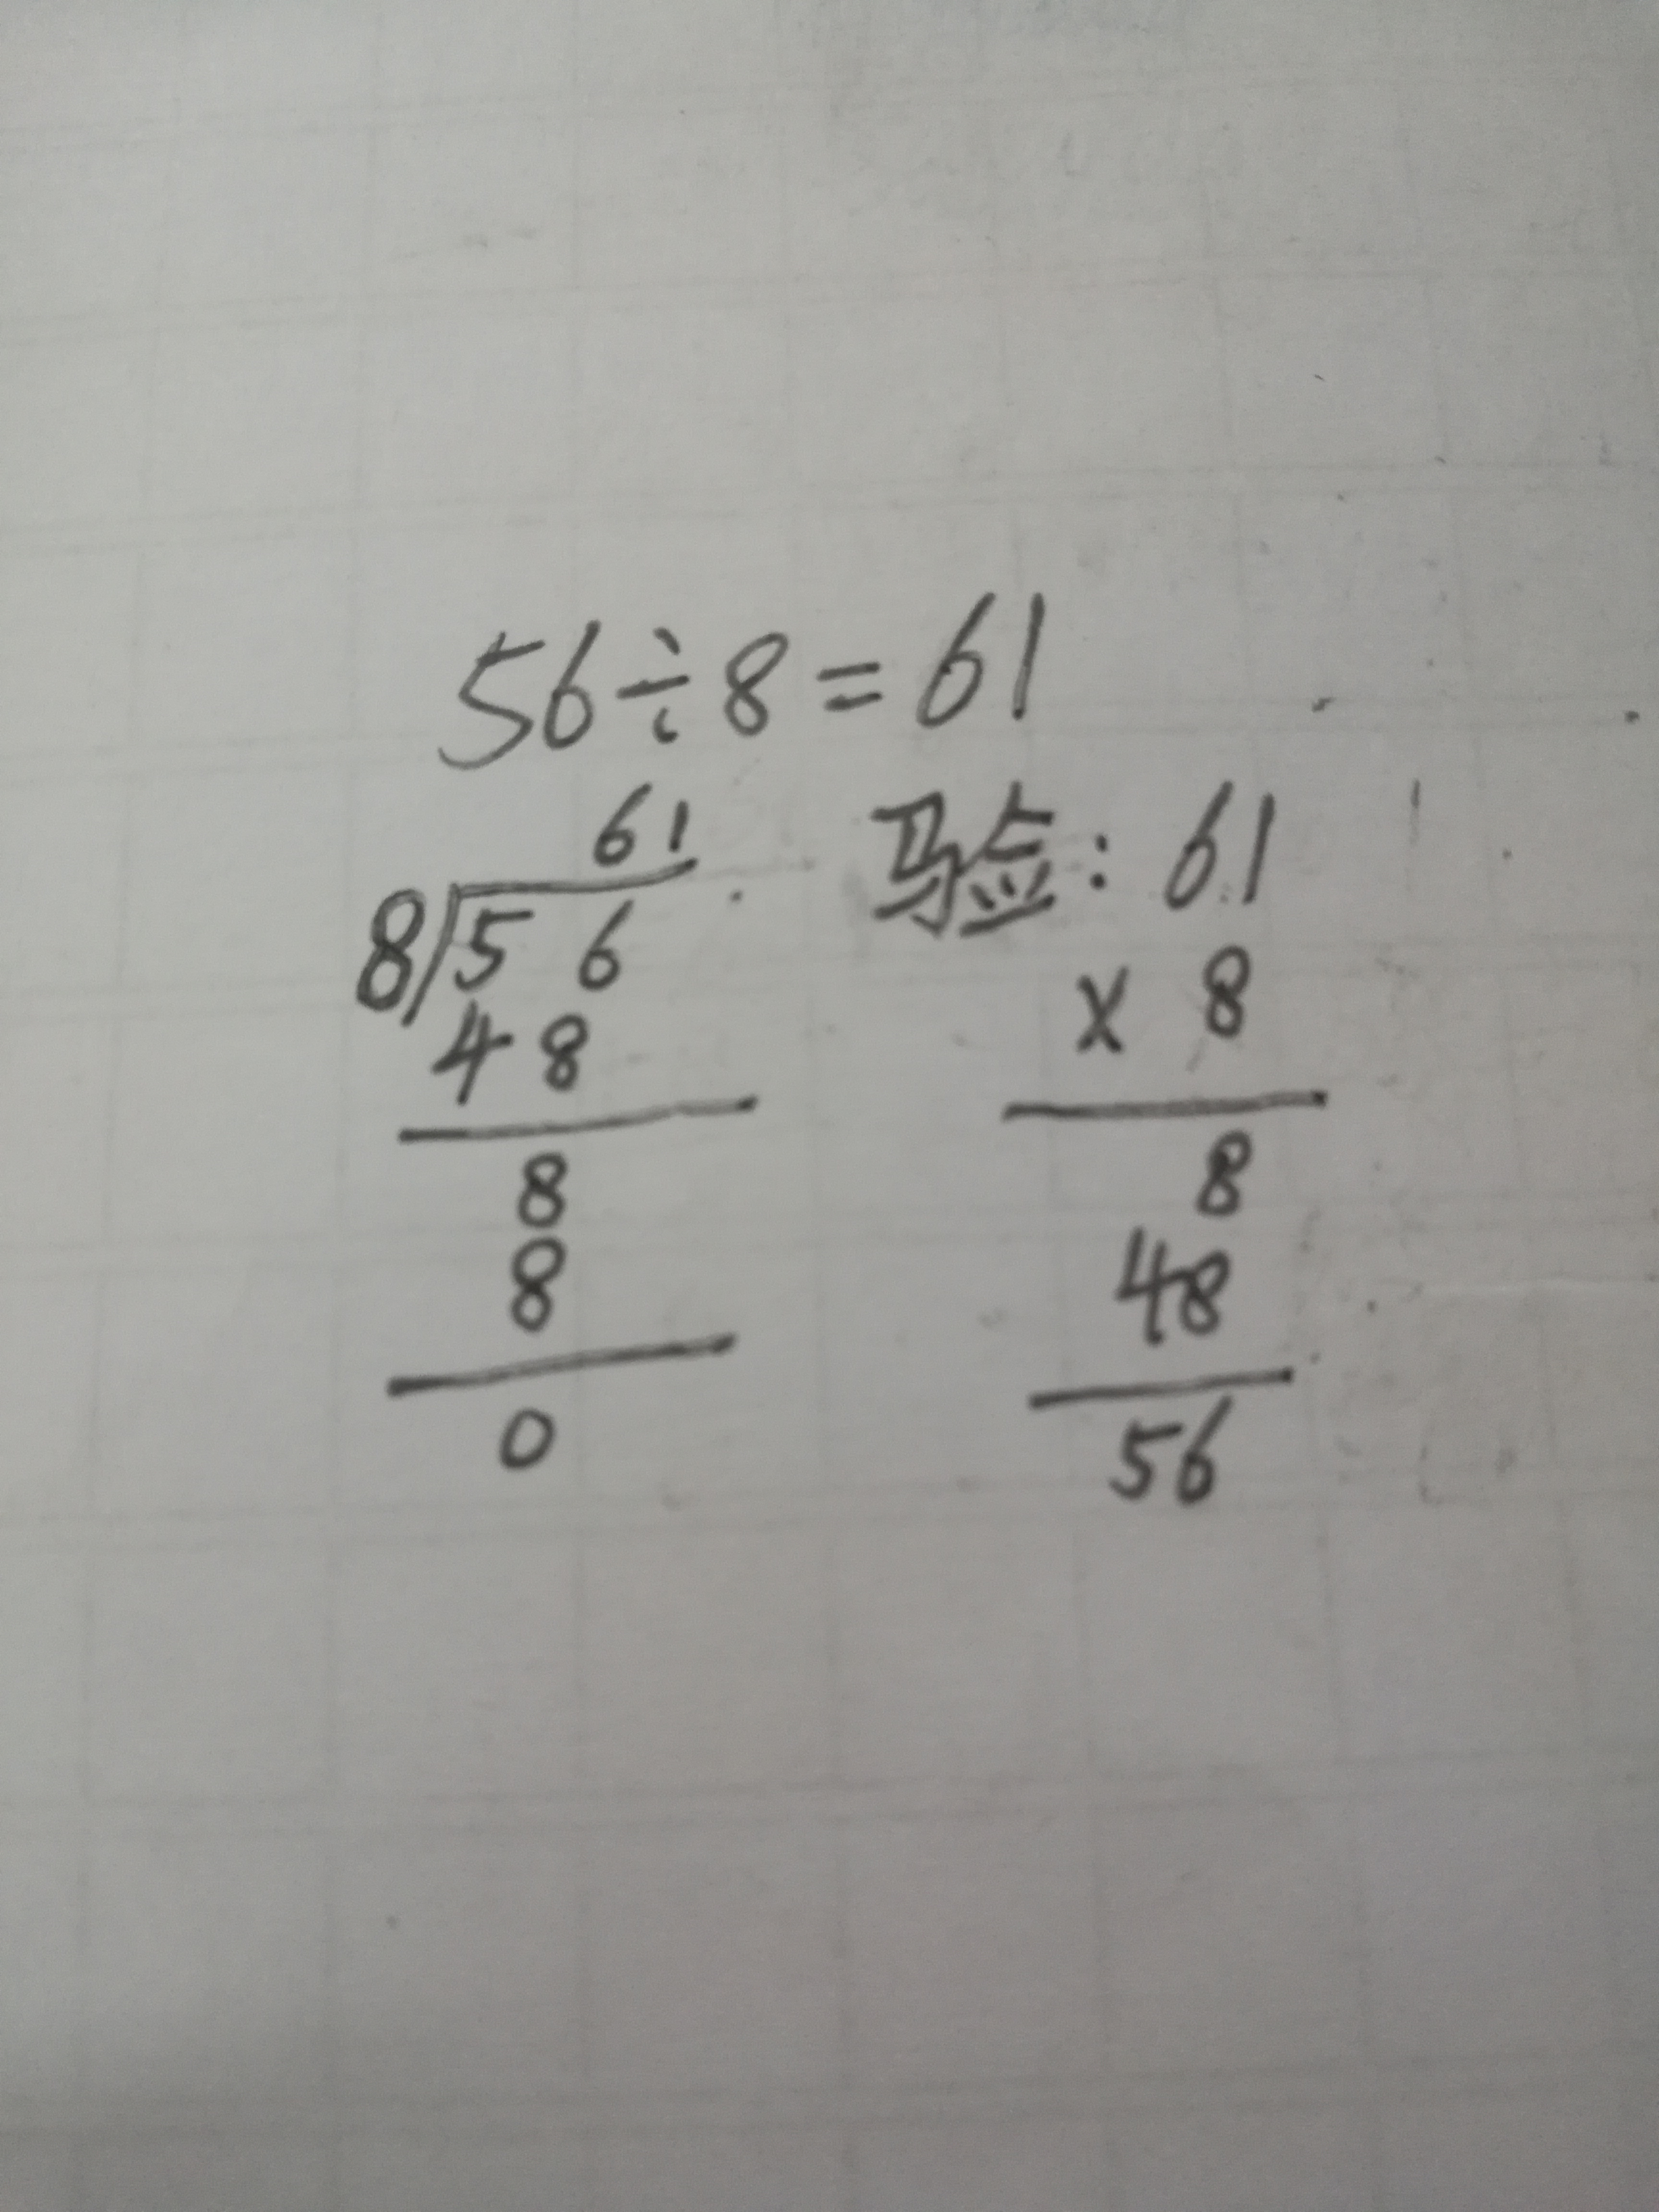 56÷8=61
61
8/56
48
8
8
0
验: 61
× 8
8
48
56